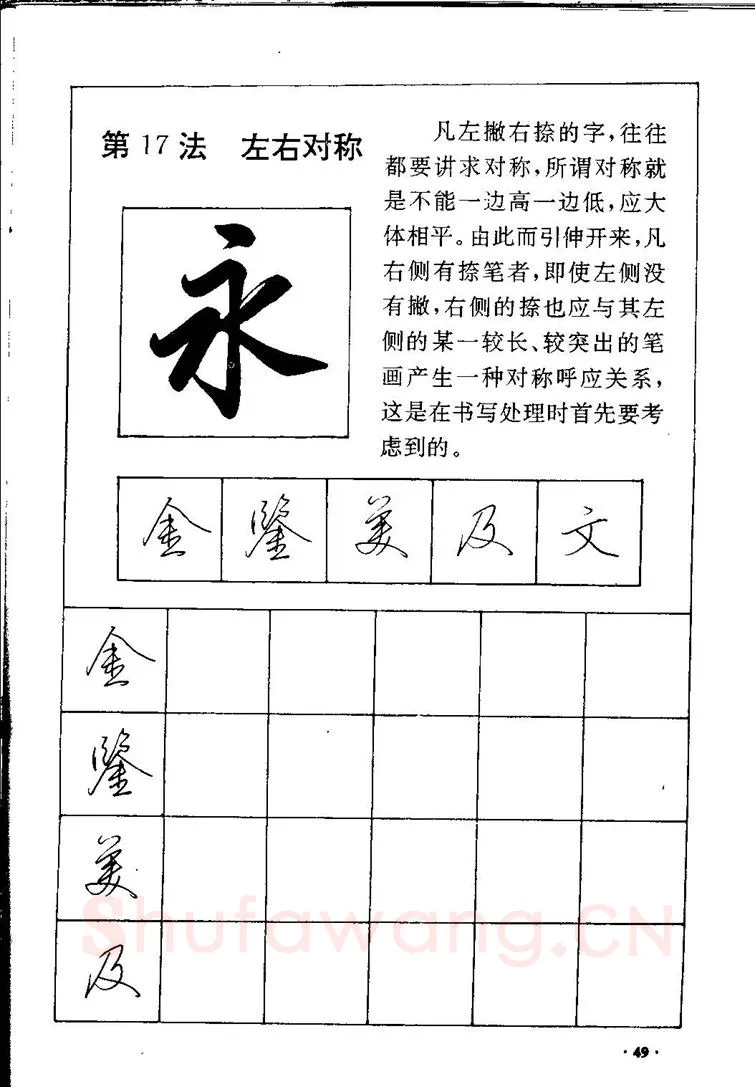 第17法 左右对称
凡左撇右捺的字，往往
都要讲求对称，所谓对称就
是不能一边高一边低，应大
体相平。由此而引伸开来，凡
右侧有捺笔者，即使左侧没
有撇，右侧的捺也应与其左
侧的某一较长、较突出的笔
画产生一种对称呼应关系，
这是在书写处理时首先要考
虑到的。
永
金 鋻 美 及 文
金
鋻
美
及
Shufawang.CN
·49·